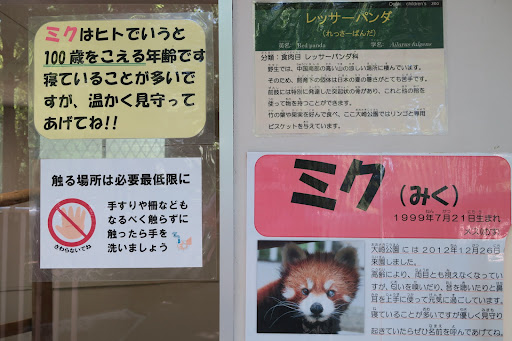 ミクはヒトでいうと
100歳をこえる年齢です
寝ていることが多いで
すが、温かく見守って
あげてね!!
触る場所は必要最低限に
手すりや柵なども
なるべく触らずに
触ったら手を
洗いましょう
さわらないでね
レッサーパンダ
(れっさーぱんだ)
英名: Red panda 学名: Ailurus fulgens
分類:食肉目 レッサーパンダ科
野生では、中国南部の高い山の涼しい場所に棲んでいます。
そのため、飼育下の個体は日本の夏の暑さがとても苦手です。
前肢には特別に発達した突起状の骨があり、これと指の形を
使って物を持つことができます。
竹の葉や果実を好んで食べ、ここ大崎公園ではリンゴと専用
ビスケットを与えています。
ミク(みく)
1999年7月21日生まれ
大崎公園には2012年12月26日
来園しました。
高齢により、両目とも視えなくなってい
ますが、匂いを嗅いだり、音を聴いたりと鼻
耳を上手に使って元気に過ごしています。
寝ていることが多いですが優しく見守り
起きていたらぜひ名前を呼んであげてね。